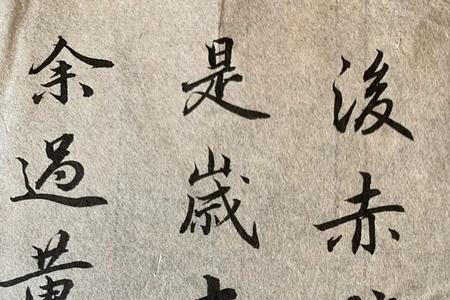 後赤
是歲
余過黃